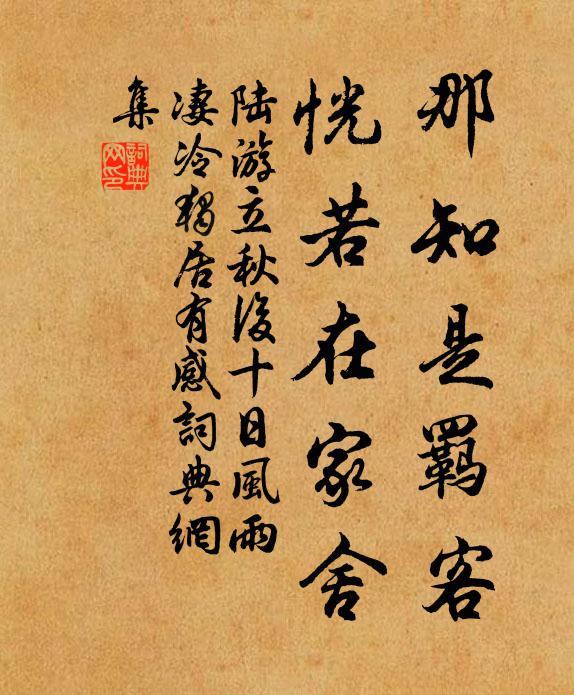 那知是羁客
恍若在家舍
陆游立秋後十日風雨
凄冷独居有感詞典網
集
詞典網印